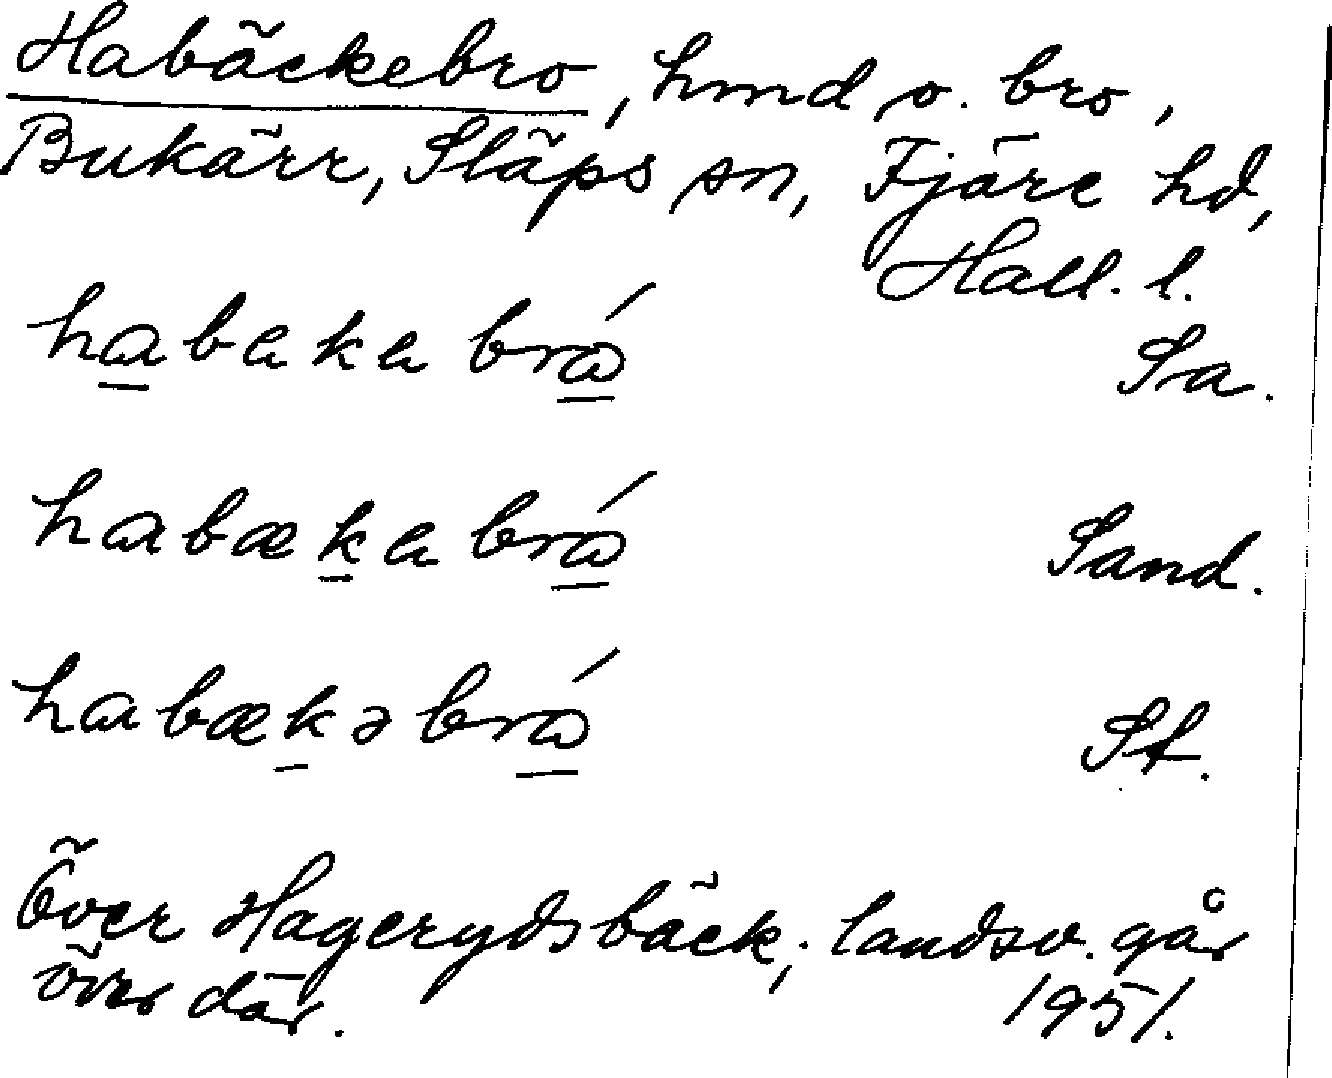 Habäckebro, hmd o. bro,
Bukärr, Släps sn, Fjäre hd,
Hall. l.
habaka brá Sa.
habækabrá Sand.
habækəbrá St.
Över Hagerydsbäck; landsv. går
över där. 1951.